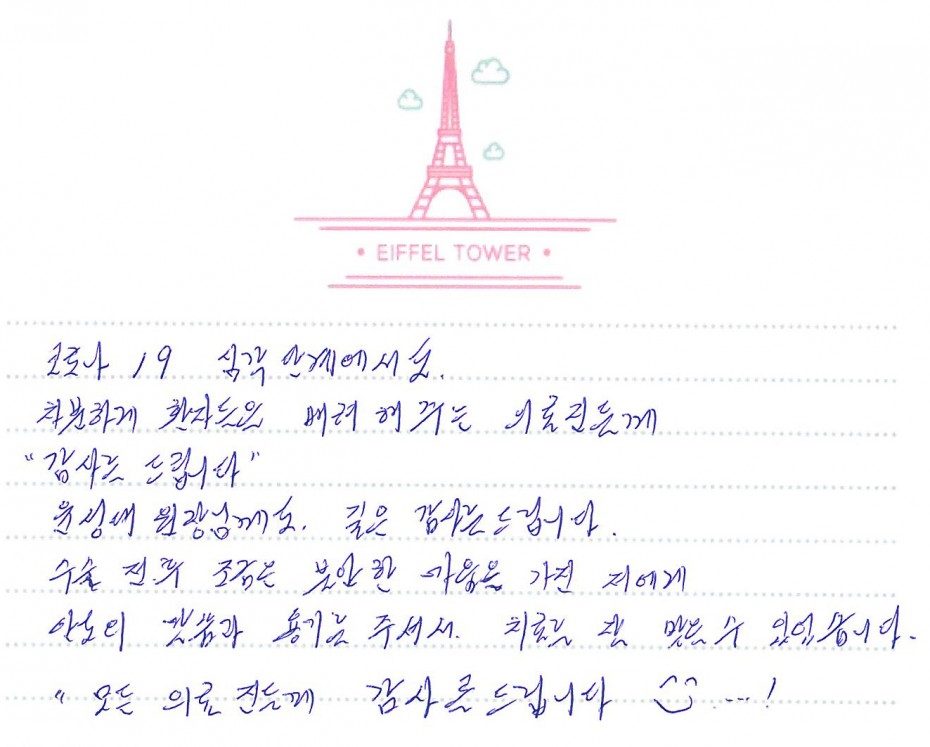 • EIFFEL TOWER •
코로나 19 심각 단계에서도.
차분하게 환자들을 배려 해 주는 의료진들께
"감사를 드립니다"
윤성대 원장님께도. 깊은 감사를 드립니다.
수술 전.후 조금은 불안한 마음을 가진 저에게
안도의 말씀과 용기를 주셔서. 치료를 잘 받을 수 있었습니다.
" 모든 의료 진들께 감사를 드립니다 ...!